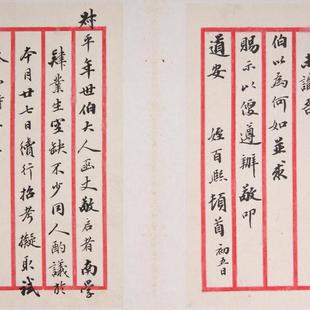 未識吾
伯以為何如並求
賜示以便遵辦敬叩
道安 姪百熙頓首 初五日
平年世伯大人函丈敬启者南学
肄業生空缺不少同人酌議於
本月廿七日續行招考擬取試